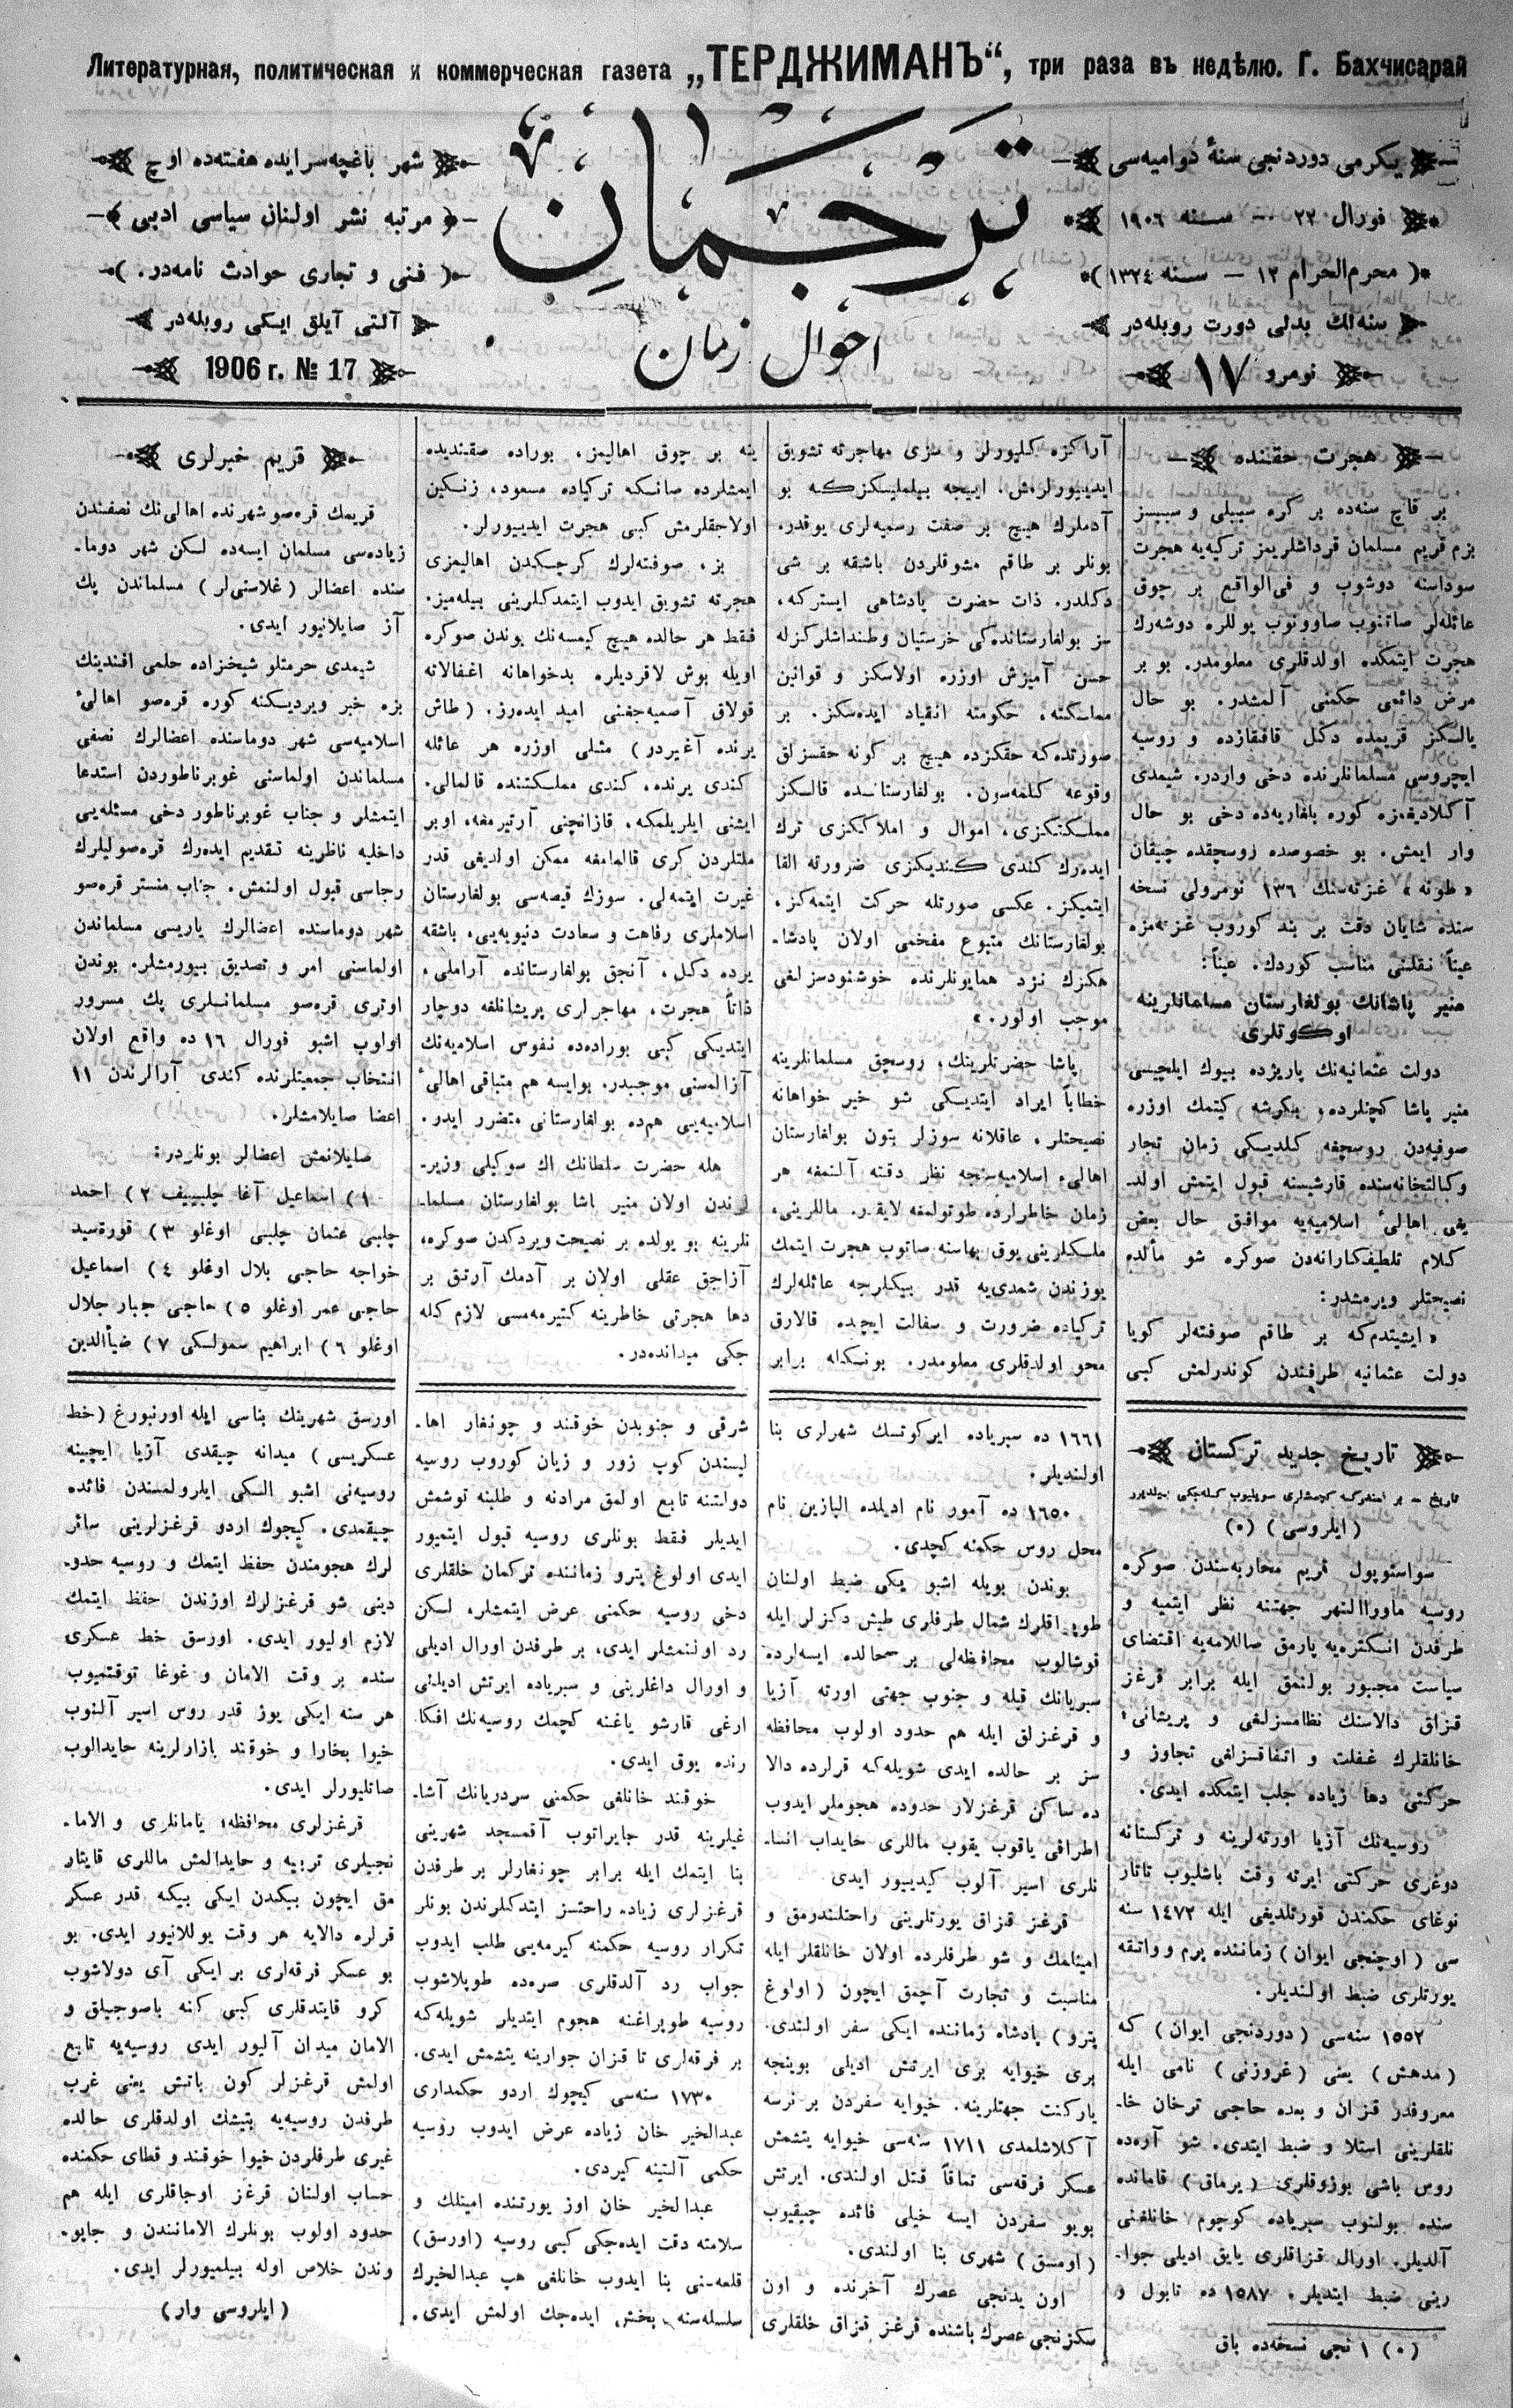 Литературная, политическая и коммерческая газета „ТЕРДЖИМАНЪ“, три раза въ недѣлю. Г. Бахчисарай
يكرمى دوردنجى سنۀ دواميه‌سى
فورال ٢٢ — سنه ١٩٠٦
( محرم‌الحرام ١٢ — سنه ١٣٢٤ )
سنه‌لك بدلى دورت روبله‌در
نومرو ١٧
ترجمان
احوال زمان
شهر باغچه‌سرايده هفته‌ده اوچ
مرتبه نشر اولنان سياسى ادبى
( فنى و تجارى حوادث نامه‌در. )
آلتى آيلق ايكى روبله‌در
1906 г. № 17
هجرت حقنده
بر قاچ سنه‌ده بر كره سببلى و سببسز
بزم قريم مسلمان قرداشلريمز تركيه‌يه هجرت
سوداسنه دوشوب و فى‌الواقع بر چوق
عائله‌لر صاتنوب صاوونوب يوللره دوشه‌رك
هجرت ايتمكده اولدقلرى معلومدر. بو بر
مرض دائمى حكمنى آلمشدر. بو حال
يالكز قريمده دكل قافقازده و روسيه
ايچروسى مسلمانلرنده دخى واردر. شيمدى
آكلاديغمزه كوره بلغاريه‌ده دخى بو حال
وار ايمش. بو خصوصده روسچقده چيقان
« طونه » غزته‌سنك ١٣٦ نومرولى نسخه
سنده شايان دقت بر بند كوروب غزته‌مزه
عيناً نقلنى مناسب كوردك. عيناً:
منير پاشانك بولغارستان مسلمانلرينه
اوكوتلرى
دولت عثمانيه‌نك پاريژده بيوك ايلچيسى
منير پاشا كچنلرده، بكرشه كيتمك اوزره
صوفيه‌دن روسچغه كلديكى زمان تجار
وكالتخانه‌سنده قارشيسنه قبول ايتمش اولد-
يغى اهالئ اسلاميه‌يه موافق حال بعض
كلام تلطيفكارانه‌دن صوكره شو مآلده
نصيحتلر ويرمشدر:
« ايشيتدم‌كه بر طاقم صوفته‌لر كويا
دولت عثمانيه طرفندن كوندرلمش كبى
آراكزه كليورلر و سزى مهاجرته تشويق
ايدييورلرمش. اييجه بيلمليسكزكه بو
آدملرك هيچ بر صفت رسميه‌لرى يوقدر.
بونلر بر طاقم مشوقلردن باشقه بر شى
دكلدر. ذات حضرت پادشاهى ايستركه،
سز بولغارستانده‌كى خرستيان وطنداشلركزله
حسن آميزش اوزره اولاسكز و قوانين
مملكته، حكومته انقياد ايده‌سكز. بر
صورتده‌كه حقكزده هيچ بر كونه حقسزلق
وقوعه كلمه‌سون. بولغارستانده قالكز
مملكتكزى، اموال و املاككزى ترك
ايده‌رك كندى كنديكزى ضرورته القا
ايتميكز. عكسى صورتله حركت ايتمه‌كز،
بولغارستانك متبوع مفخمى اولان پادشا-
هكزك نزد همايونلرنده خوشنودسزلغى
موجب اولور. »
پاشا حضرتلرينك، روسچق مسلمانلرينه
خطاباً ايراد ايتديكى شو خير خواهانه
نصيحتلر، عاقلانه سوزلر بتون بولغارستان
اهالئ اسلاميه‌سنجه نظر دقته آلنمغه هر
زمان خاطرلرده طوتولمغه لايقدر. ماللرينى،
ملكلرينى يوق بهاسنه صاتوب هجرت ايتمك
يوزندن شمدى‌يه قدر بيكلرجه عائله‌لرك
تركياده ضرورت و سفالت ايچده قالارق
محو اولدقلرى معلومدر. بونكله برابر
ينه بر چوق اهاليمز، بوراده صقنديده
ايمشلرده صانكه تركياده مسعود، زنكين
اولاجقلرمش كبى هجرت ايدييورلر.
بز، صوفته‌لرك كرچكدن اهاليمزى
هجرته تشويق ايدوب ايتمدكلرينى بيله‌ميز.
فقط هر حالده هيچ كيمسه‌نك بوندن صوكره
اويله بوش لاقرديلره بدخواهانه اغفالاته
قولاق آصميه‌جغنى اميد ايده‌رز. ( طاش
يرنده آغيردر ) مثلى اوزره هر عائله
كندى يرنده، كندى مملكتنده قالمالى.
ايشنى ايلريلمكه، قازانچنى آرتيرمغه، اوبر
ملتلردن كرى قالمامغه ممكن اولديغى قدر
غيرت ايتمه‌لى. سوزك قيصه‌سى بولغارستان
اسلاملرى رفاهت و سعادت دنيويه‌يى، باشقه
يرده دكل، آنجق بولغارستانده آراملى،
ذاتاً هجرت، مهاجرلرى پريشانلغه دوچار
ايتديكى كبى بوراده‌ده نفوس اسلاميه‌نك
آزالمسنى موجبدر. بوايسه هم متباقى اهالئ
اسلاميه‌يى هم‌ده بولغارستانى متضرر ايدر.
هله حضرت سلطانك اك سوكيلى وزير-
لرندن اولان منير پاشا بولغارستان مسلما-
نلرينه بو يولده بر نصيحت ويردكدن صوكره،
آزاجق عقلى اولان بر آدمك آرتق بر
دها هجرتى خاطرينه كتيرمه‌مسى لازم كله
جكى ميدانده‌در.
قريم خبرلرى
قريمك قره‌صو شهرنده اهالى‌نك نصفندن
زياده‌سى مسلمان ايسه‌ده لكن شهر دوما-
سنده اعضالر ( غلاسنى‌لر ) مسلماندن پك
آز صايلانيور ايدى.
شيمدى حرمتلو شيخزاده حلمى افندينك
بزه خبر ويرديكنه كوره قره‌صو اهالئ
اسلاميه‌سى شهر دوماسنده اعضالرك نصفى
مسلماندن اولماسنى غوبرناطوردن استدعا
ايتمشلر و جناب غوبرناطور دخى مسئله‌يى
داخليه ناظرينه تقديم ايده‌رك قره‌صوليلرك
رجاسى قبول اولنمش. جناب منستر قره‌صو
شهر دوماسنده اعضالرك ياريسى مسلماندن
اولماسنى امر و تصديق بييورمشلر. بوندن
اوترى قره‌صو مسلمانلرى پك مسرور
اولوب اشبو فورال ١٦ ده واقع اولان
انتخاب جمعيتلرنده كندى آرالرندن ١١
اعضا صايلامشلر.
صايلانمش اعضالر بونلردر:
١ ) اسماعيل آغا چلبييف ٢ ) احمد
چلبى عثمان چلبى اوغلو ٣ ) قوره‌سيد
خواجه حاجى بلال اوغلو ٤ ) اسماعيل
حاجى عمر اوغلو ٥ ) حاجى جبار جلال
اوغلو ٦ ) ابراهيم سمولسكى ٧ ) ضياالدين
تاريخ جديد تركستان
تاريخ — بر امتدركه كچمشلرى سويليوب كله‌جكى بيلديرر
( ايلروسى ) (٠)
سواستوپول قريم محاربه‌سندن صوكره
روسيه ماوراالنهر جهتنه نظر ايتميه و
طرفدن انكلتره‌يه پارمق صاللامه‌يه اقتضاى
سياست مجبور بولنمق ايله برابر قرغز
قزاق دالاسنك نظامسزلغى و پريشانى؛
خانلقلرك غفلت و اتفاقسزلغى تجاوز و
حركتى دها زياده جلب ايتمكده ايدى.
روسيه‌نك آزيا اورته‌لرينه و تركستانه
دوغرى حركتى ايرته وقت باشليوب تاتار
نوغاى حكمندن قورتلديغى ايله ١٤٧٢ سنه
سى ( اوچنجى ايوان ) زماننده پرم و واتقه
يورتلرى ضبط اولنديلر.
١٥٥٢ سنه‌سى ( دوردنجى ايوان ) كه
( مدهش ) يعنى ( غروزنى ) نامى ايله
معروفدر قزان و بعده حاجى ترخان خا-
نلقلرينى استلا و ضبط ايتدى. شو آره‌ده
روس باشى بوزوقلرى ( يرماق ) قامانده
سنده بولنوب سبرياده كوچوم خانلغنى
آلديلر. اورال قزاقلرى يايق اديلى جوا-
رينى ضبط ايتديلر. ١٥٨٧ ده تابول و
(٠) ١ نجى نسخه‌ده باق
١٦٦١ ده سبرياده ايركوتسك شهرلرى بنا
اولنديلر.
١٦٥٠ ده آمور نام اديلده البازين نام
محل روس حكمنه كچدى.
بوندن بويله اشبو يكى ضبط اولنان
طوپراقلرك شمال طرفلرى طيش دكزلر ايله
قوشالوب محافظه‌لى بر حالده ايسه‌لرده
سبريانك قبله و جنوب جهتى اورته آزيا
و قرغزلق ايله هم حدود اولوب محافظه
سز بر حالده ايدى شويله‌كه قرلرده دالا
ده ساكن قرغزلار حدوده هجوملر ايدوب
اطرافى ياقوب يقوب ماللرى حايداب انسا-
نلرى اسير آلوب كيدييور ايدى.
قرغز قزاق يورتلرينى راحتلندرمق و
امينلمك و شو طرفلرده اولان خانلقلر ايله
مناسبت و تجارت آچمق ايچون ( اولوغ
پترو ) پادشاه زماننده ايكى سفر اولندى.
برى خيوايه برى ايرتش اديلى بوينجه
ياركنت جهتلرينه. خيوايه سفردن بر نرسه
آكلاشلمدى ١٧١١ سنه‌سى خيوايه يتشمش
عسكر فرقه‌سى تماقاً قتل اولندى. ايرتش
بويو سفردن ايسه خيلى فائده چيقيوب
( اومسق ) شهرى بنا اولندى.
اون يدنجى عصرك آخرنده و اون
سكزنجى عصرك باشنده قرغز قزاق خلقلرى
شرقى و جنوبدن خوقند و چونغار اها-
ليسندن كوپ زور و زيان كوروب روسيه
دولتنه تابع اولمق مرادنه و طلبنه توشمش
ايديلر فقط بونلرى روسيه قبول ايتميور
ايدى اولوغ پترو زماننده تركمان خلقلرى
دخى روسيه حكمنى عرض ايتمشلر، لكن
رد اولنمشلر ايدى، بر طرفدن اورال اديلى
و اورال داغلرينى و سبرياده ايرتش اديلنى
ارغى قارشو ياغنه كچمك روسيه‌نك افكا-
رنده يوق ايدى.
خوقند خانلغى حكمنى سردريانك آشا-
غيلرينه قدر جايراتوب آقمسجد شهرينى
بنا ايتمك ايله برابر چونغارلر بر طرفدن
قرغزلرى زياده راحتسز ايتدكلرندن بونلر
تكرار روسيه حكمنه كيرمه‌يى طلب ايدوب
جواب رد آلدقلرى صره‌ده طوپلاشوب
روسيه طوپراغنه هجوم ايتديلر شويله‌كه
بر فرقه‌لرى تا قزان جوارينه يتشمش ايدى.
١٧٣٠ سنه‌سى كيچوك اردو حكمدارى
عبدالخير خان زياده عرض ايدوب روسيه
حكمى آلتينه كيردى.
عبدالخير خان اوز يورتنده امينلك و
سلامته دقت ايده‌جكى كبى روسيه ( اورسق )
قلعه‌سنى بنا ايدوب خانلغى هپ عبدالخيرك
سلسله‌سنه بخش ايده‌جك اولمش ايدى.
اورسق شهرينك بناسى ايله اورنبورغ ( خط
عسكريسى ) ميدانه چيقدى آزيا ايچينه
روسيه‌نى اشبو الكى ايلرولمسندن فائده
چيقمدى. كيچوك اردو قرغزلرينى سائر
لرك هجومندن حفظ ايتمك و روسيه حدو-
دينى شو قرغزلرك اوزندن حفظ ايتمك
لازم اوليور ايدى. اورسق خط عسكرى
سنده بر وقت الامان و غوغا توقتميوب
هر سنه ايكى يوز قدر روس اسير آلنوب
خيوا بخارا و خوقند بازارلرينه حايدالوب
صاتليورلر ايدى.
قرغزلرى محافظه؛ يامانلرى و الاما-
نجيلرى تربيه و حايدالمش ماللرى قايتار
مق ايچون بيكدن ايكى بيكه قدر عسكر
قرلره دالايه هر وقت يوللانيور ايدى. بو
بو عسكر فرقه‌لرى بر ايكى آى دولاشوب
كرو قايتدقلرى كبى كنه باصوجيلق و
الامان ميدان آليور ايدى روسيه‌يه تابع
اولمش قرغزلر كون باتش يعنى غرب
طرفدن روسيه‌يه بتيشك اولدقلرى حالده
غيرى طرفلردن خيوا خوقند و قطاى حكمنده
حساب اولنان قرغز اوجاقلرى ايله هم
حدود اولوب بونلرك الامانندن و جاپو-
وندن خلاص اوله بيلميورلر ايدى.
( ايلروسى وار )